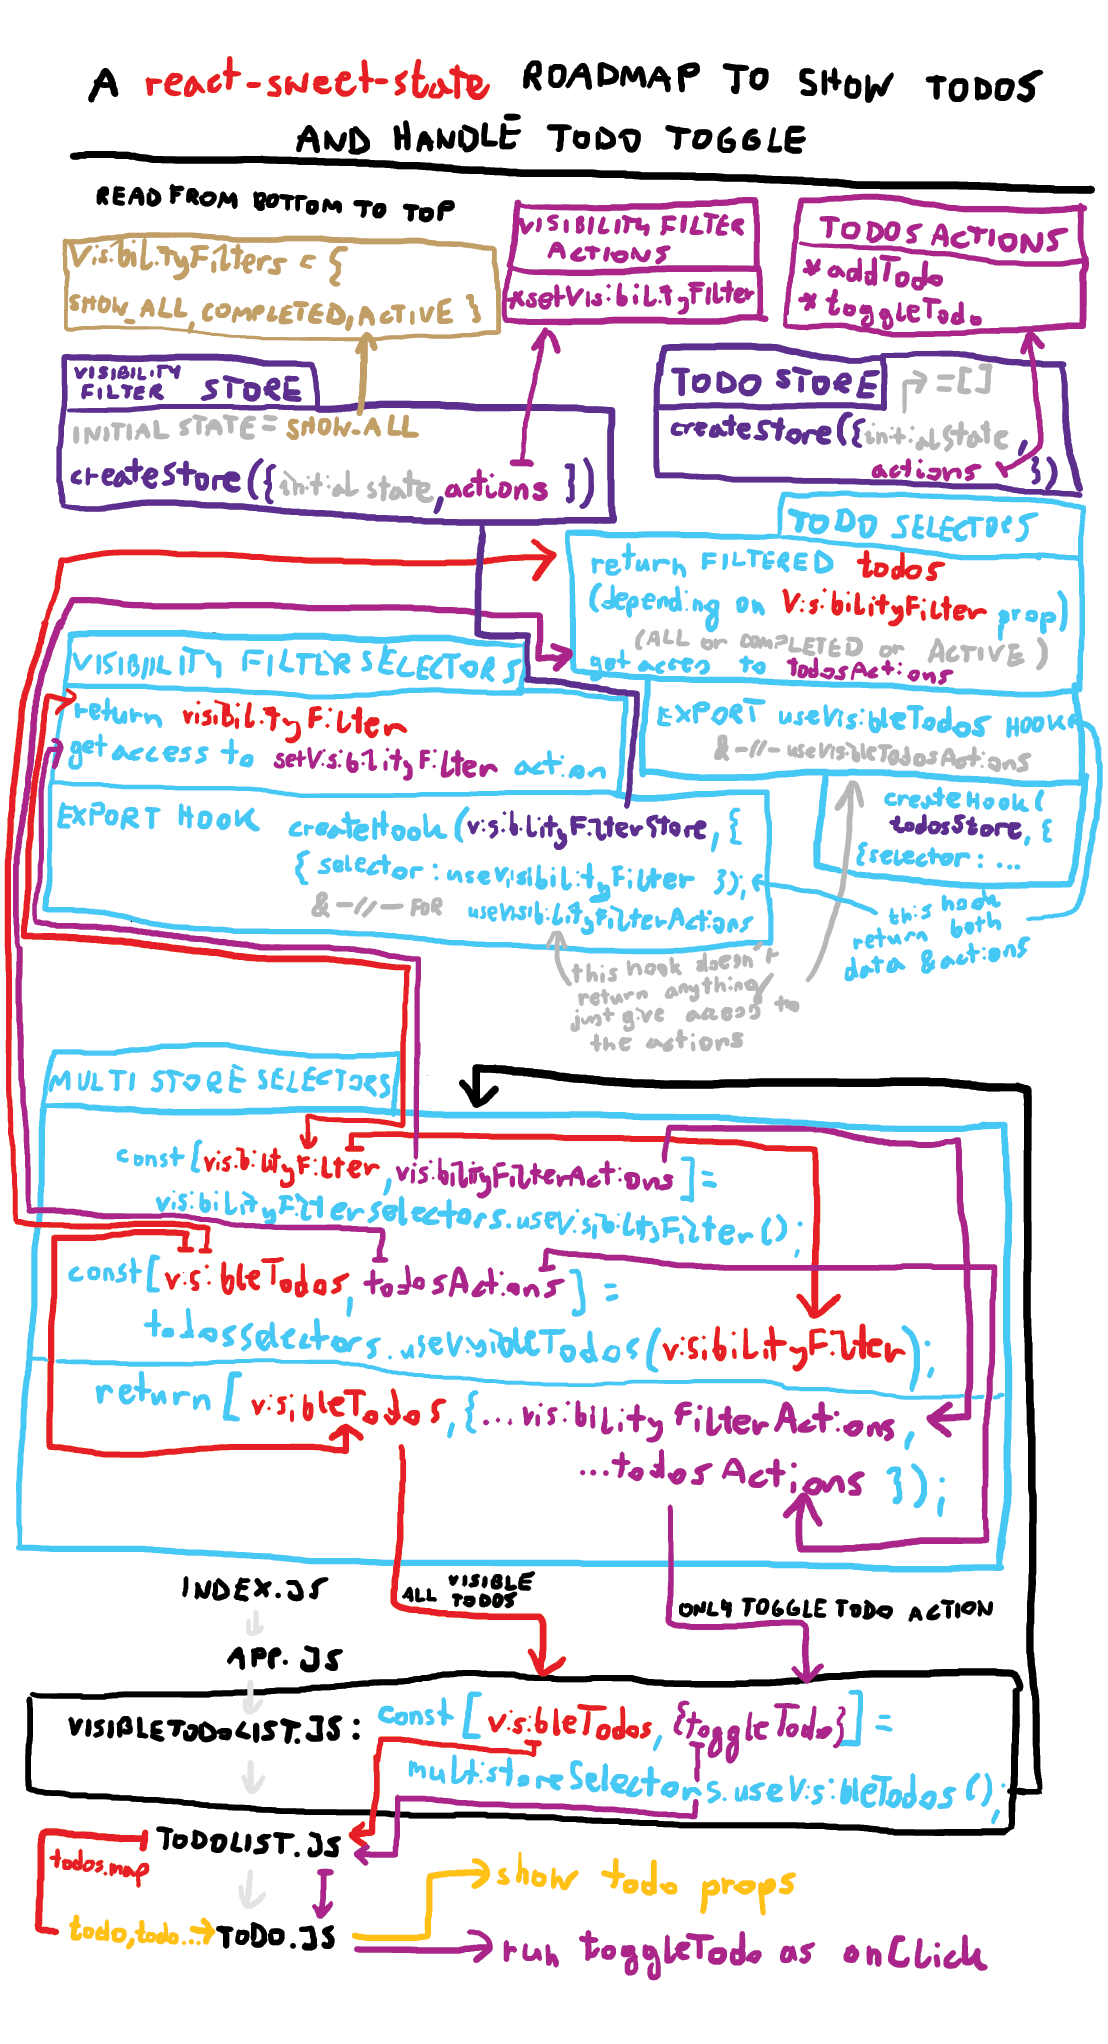 A react-sweet-state ROADMAP TO SHOW TODOS
AND HANDLE TODO TOGGLE
READ FROM BOTTOM TO TOP
VisibilityFilters = {
SHOW_ALL, COMPLETED, ACTIVE }
VISIBILITY FILTER
ACTIONS
*setVisibilityFilter
TODOS ACTIONS
* addTodo
* toggleTodo
VISIBILITY
FILTER STORE
INITIAL STATE = SHOW_ALL
createStore({initial state, actions })
TODO STORE
=[]
createStore({initialState,
actions })
TODO SELECTORS
return FILTERED todos
(depending on VisibilityFilter prop)
(ALL or COMPLETED or ACTIVE)
get acces to todosActions
EXPORT useVisibleTodos HOOK
& -//- useVisibleTodosActions
createHook(
todosStore, {
{selector: ...
VISIBILITY FILTER SELECTORS
return visibilityFilter
get access to setVisibilityFilter action
EXPORT HOOK createHook(visibilityFilterStore, {
{ selector: useVisibilityFilter });
& -//- FOR useVisibilityFilterActions
this hook
return both
data & actions
this hook doesn't
return anything
just give access to
the actions
MULTI STORE SELECTORS
const[visibilityFilter, visibilityFilterActions] =
visibilityFilterSelectors.useVisibilityFilter();
const[visibleTodos, todosActions] =
todosSelectors.useVisibleTodos(visibilityFilter);
return [visibleTodos, {...visibilityFilterActions,
...todosActions });
INDEX.JS
ALL VISIBLE
TODOS
ONLY TOGGLE TODO ACTION
APP.JS
VISIBLETODOLIST.JS: const [visibleTodos, {toggleTodo}] =
multistoreSelectors.useVisibleTodos();
TODOLIST.JS
todos.map
show todo props
todo, todo... TODO.JS
run toggleTodo as onClick